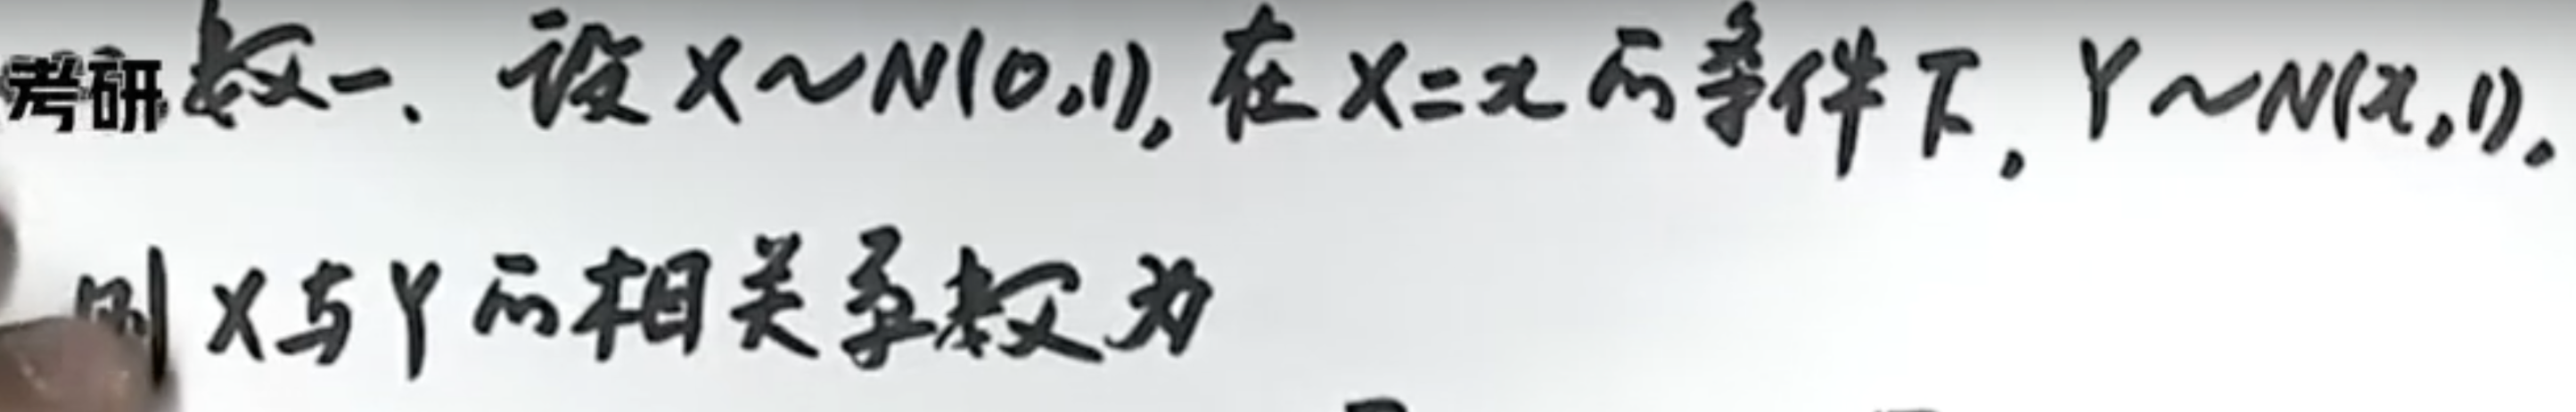 考研数一. 设X~N(0,1), 在X=x的条件下, Y~N(x,1),
则X与Y的相关系数为